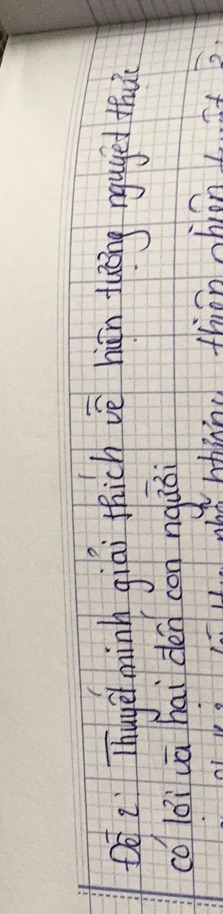 Đề 2: Thuyết minh giải thích về hiện tượng nguyệt thực
có lời và hại đến con người
thiên nhiên